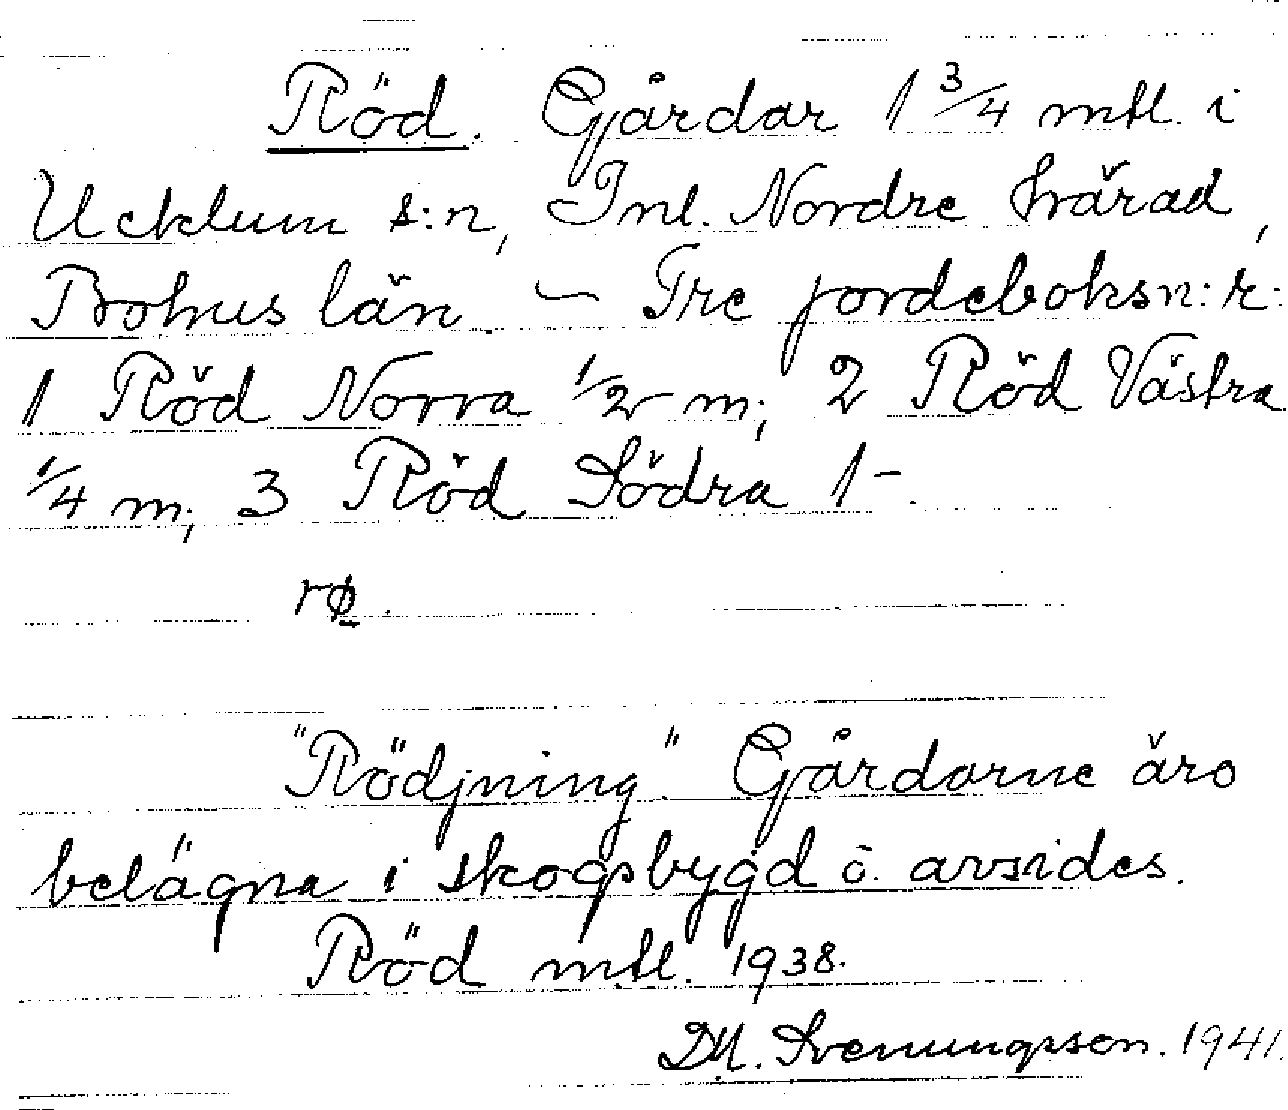 Röd. Gårdar 1 3/4 mtl. i
Ucklum s:n, Inl. Nordre härad,
Bohus län. – Tre jordeboksn:r:
1 Röd Norra 1/2 m; 2 Röd Västra
1/4 m; 3 Röd Södra 1 -.
rø.
"Rödjning". Gårdarne äro
belägna i skogsbygd o. avsides.
Röd mtl. 1938.
Svenungsson. 1941.